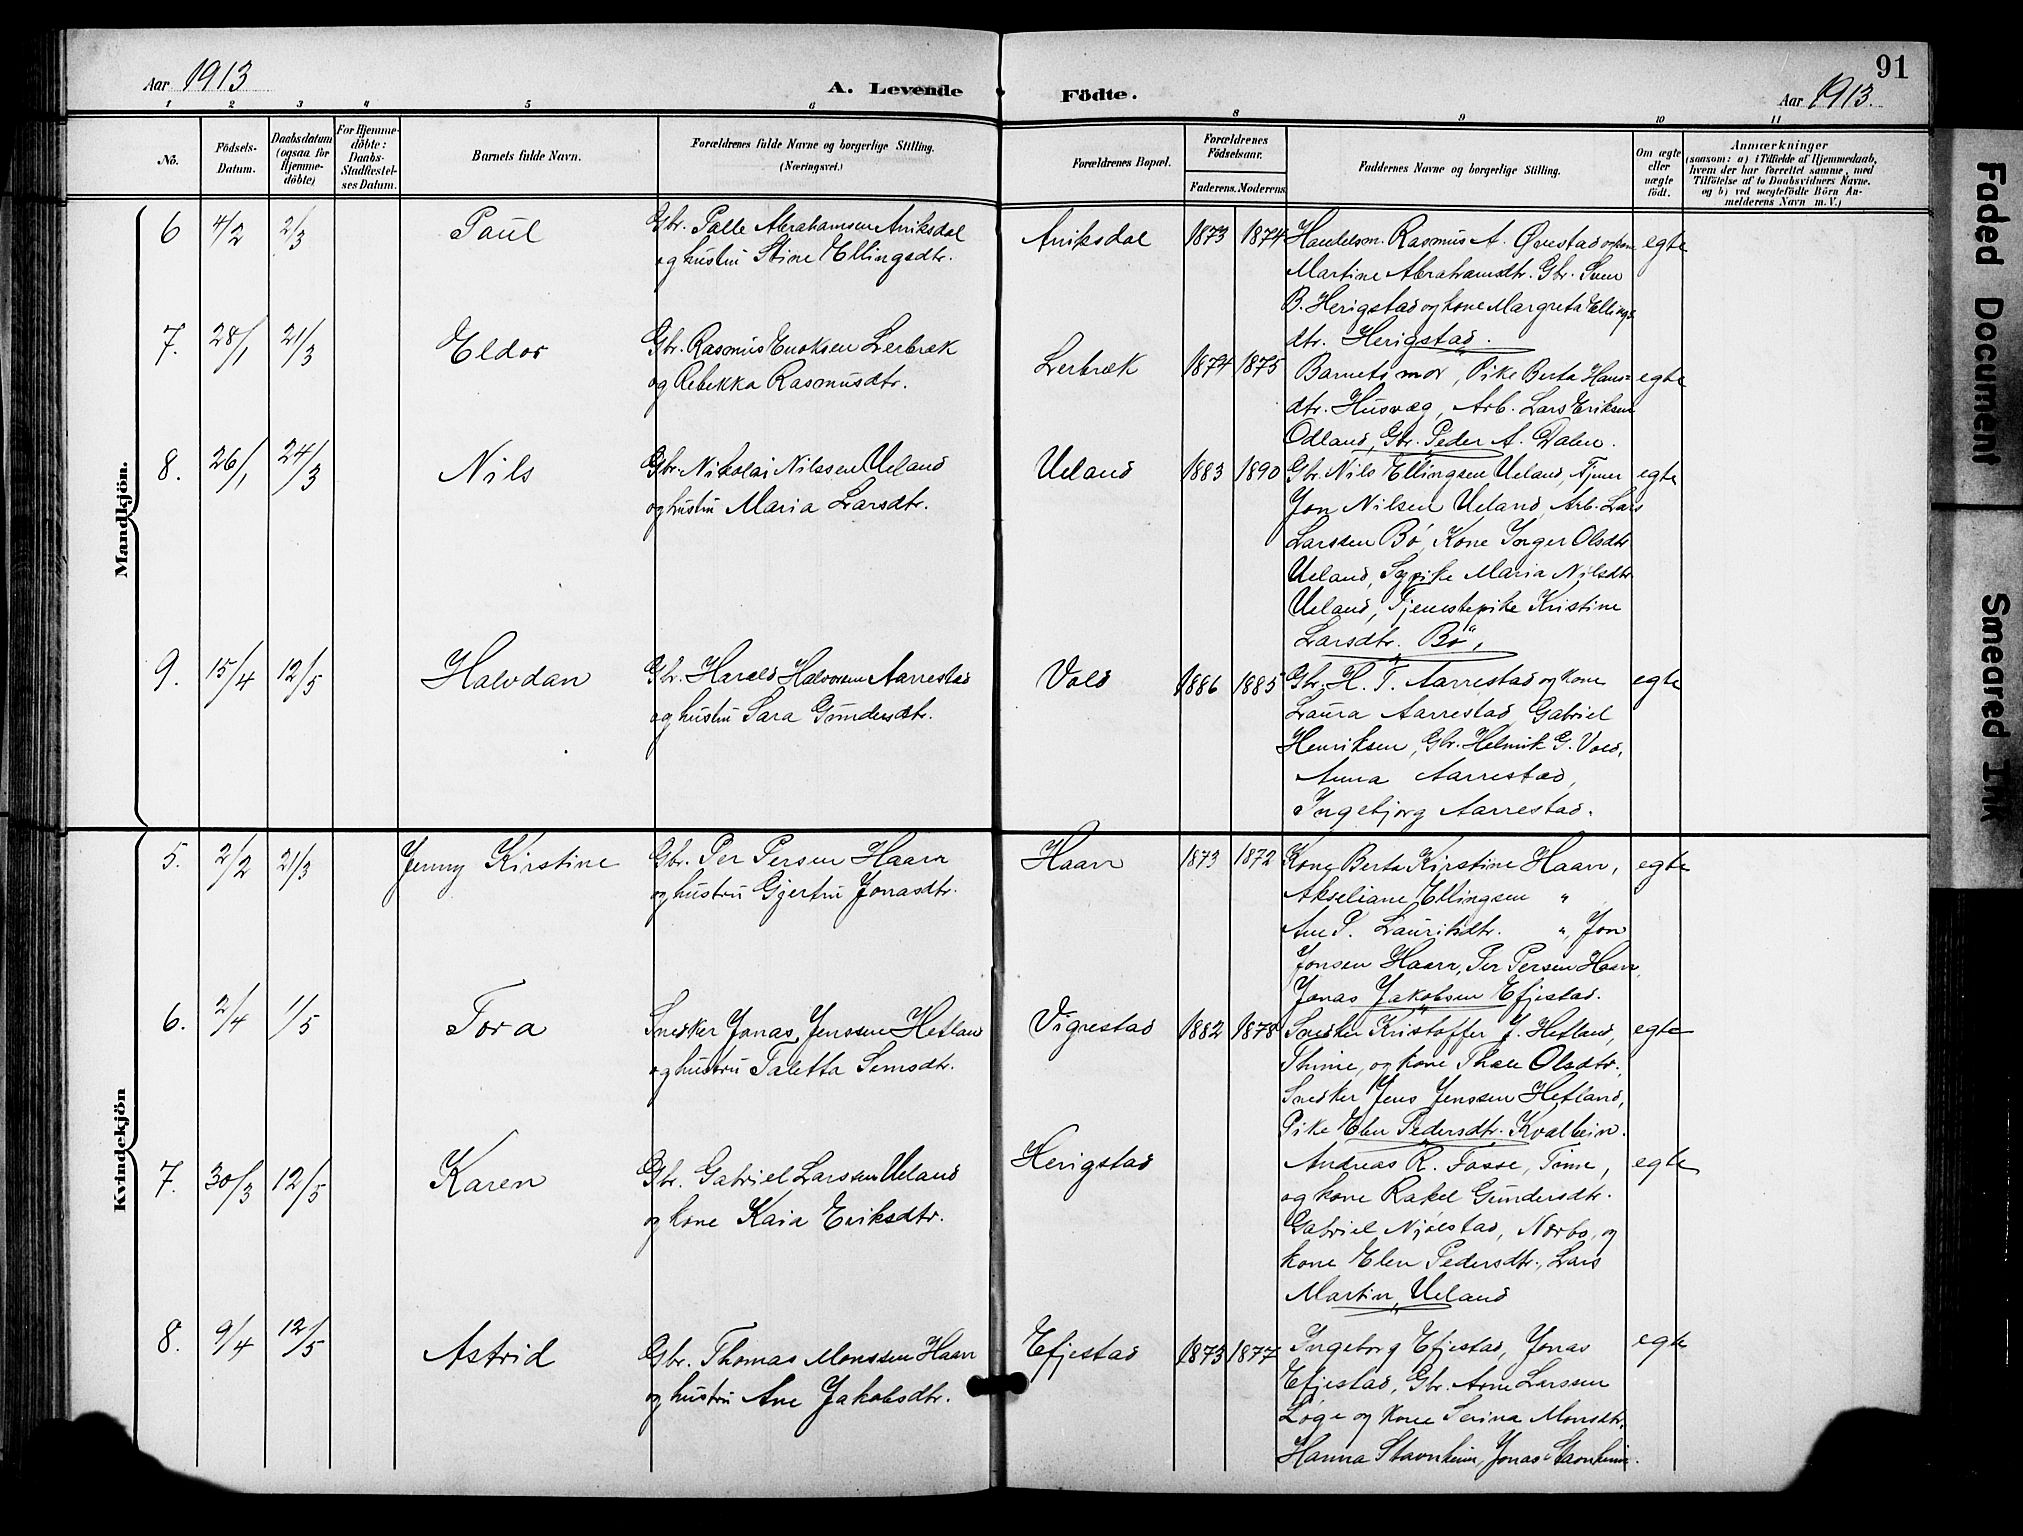 91
Aar 1913
A. Levende
Födte.
Aar 1913.
1 2 3 4 5 6 8 9 10 11
No.
Födsels-
Datum.
Daabsdatum
(ogsaa for
Hjemme-
döbte)
For Hjemme-
döbte:
Daabs-
Stadfæstel-
ses Datum.
Barnets fulde Navn.
Forældrenes fulde Navne og borgerlige Stilling.
(Næringsvei.)
Forældrenes Bopæl.
Forældrenes
Födselsaar.
Faderens. Moderens.
Faddernes Navne og borgerlige Stilling.
Om ægte
eller
uægte
födt.
Anmærkninger
(saasom: a) i Tilfælde af Hjemmedaab,
hvem der har forrettet samme, med
Tilföielse af to Daabsvidners Navne.
og b) ved uægtefödte Börn An-
melderens Navn m. V.)
Mandkjön.
6 4/2 2/3 Paul
Gbr. Palle Abrahamsen Aniksdal
og hustru Stine Ellingsdtr.
Aniksdal 1873 1874
Handelsm. Rasmus A. Øvestad og kone
Martine Abrahamsdtr. Gbr. Sven
B. Herigstad og kone Margreta Ellings
dtr. Herigstad.
egte
7. 28/1 21/3 Eldor
Gbr. Rasmus Enoksen Lerbræk
og Rebekka Rasmusdtr.
Lerbræk 1874 1875
Barnets mor, Pike Berta Hans=
dtr. Husvæg, Arb. Lars Eriksen
Odland, Gbr. Peder A. Dalen.
egte
8. 26/1 24/3 Nils
Gbr. Nikolai Nilssen Ueland
og hustru Maria Larsdtr.
Ueland 1883 1890
Gbr. Nils Ellingsen Ueland, Tjener
Jon Nilsen Ueland, Arb. Lars
Larssen Bø, Kone Inger Olsdtr.
Ueland, Sypike Maria Nilsdtr.
Ueland, Tjenestepike Kristine
Larsdtr. Bø,
egte
9. 15/4 12/5 Halvdan
Gbr. Harald Halvorsen Aarrestad
og hustru Sara Gundersdtr.
Vold 1886 1885
Gbr. H. T. Aarrestad og kone
Laura Aarrestad, Gabriel
Henriksen, Gbr. Helmik G. Vold,
Anna Aarrestad,
Ingebjorg Aarrestad.
egte
Kvindekjön
5. 2/2 21/3 Jenny Kirstine
Gbr. Per Persen Haarr
og hustru Gjertru Jonasdtr.
Haarr 1873 1872
Kone Berta Kirstine Haarr,
Akseliane Ellingsen "
Ane P. Lauritsdtr. ", Jon
Jonsen Haarr, Per Persen Haarr,
Jonas Jakobsen Efjestad.
egte
6. 2/4 1/5 Tora
Snedker Jonas Jenssen Hetland
og hustru Taletta Semsdtr.
Vigrestad 1882 1878
Snedker Kristoffer J. Hetland,
Thime, og kone Thale Olsdtr.
Snedker Jens Jenssen Hetland,
Pike Elen Pedersdtr. Kvalbein.
egte
7. 30/3 12/5 Karen
Gbr. Gabriel Larssen Ueland
og kone Kaia Eriksdtr.
Herigstad
Andreas R. Fosse, Time,
og kone Rakel Gundersdtr.
Gabriel Njølstad, Nærbø, og
kone Elen Pedersdtr., Lars
Martin Ueland
egte
8. 9/4 12/5 Astrid
Gbr. Thomas Monssen Haarr
og hustru Ane Jakobsdtr.
Efjestad 1873 1877
Ingeborg Efjestad, Jonas
Efjestad, Gbr. Arne Larssen
Løge og kone Serina Monsdtr.
Hanna Stavnheim, Jonas Stavnheim.
egte
Faded Document
Smeared Ink